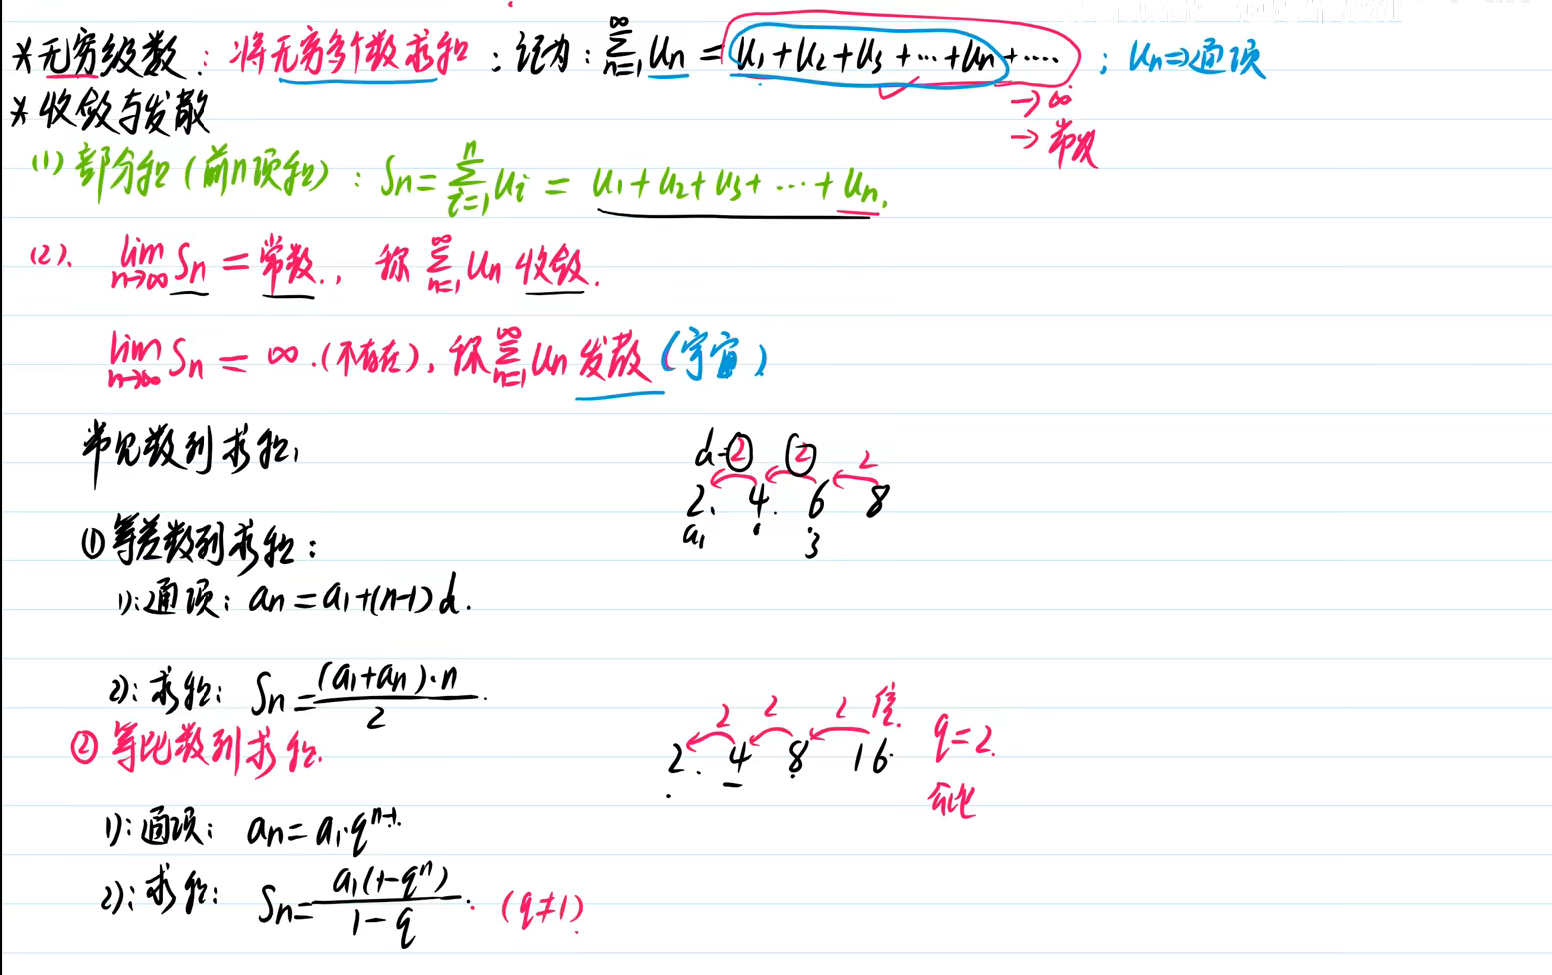 *无穷级数：将无穷多个数求和；记为：∑_{n=1}^{∞} u_n = u_1+u_2+u_3+⋯+u_n+⋯；u_n⇒通项
→∞
*收敛与发散
→常数
(1) 部分和(前n项和)：S_n=∑_{i=1}^{n} u_i = u_1+u_2+u_3+⋯+u_n.
(2). lim_{n→∞} S_n = 常数., 称 ∑_{n=1}^{∞} u_n 收敛.
lim_{n→∞} S_n = ∞.(不存在), 称 ∑_{n=1}^{∞} u_n 发散 (宇宙)
常见数列求和,
d=2 2 2
2. 4. 6 8
a_1 3
①等差数列求和：
1):通项：a_n=a_1+(n-1)d.
2):求和：S_n=(a_1+a_n)·n/2.
②等比数列求和.
2 2 2倍. q=2.
2. 4 8 16.
公比
1):通项：a_n=a_1·q^{n-1}.
2):求和：S_n=a_1(1-q^n)/1-q. (q≠1).